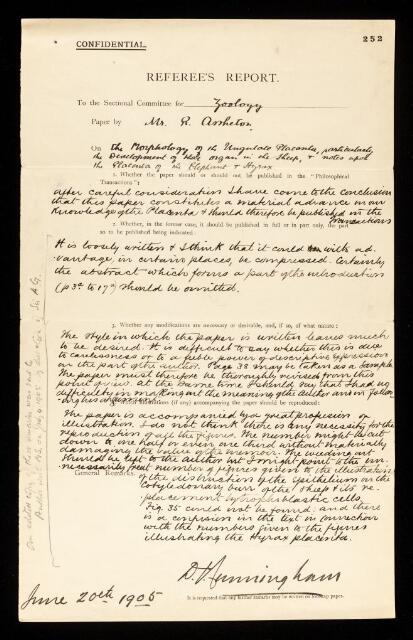 252
CONFIDENTIAL.
REFEREE'S REPORT.
To the Sectional Committee for Zoology
Paper by Mr. R. Assheton
On the Morphology of the Ungulate Placenta, particularly
the Development of that organ in the Sheep, & notes upon
the Placenta of the Elephant & Hyrax
1. Whether the paper should or should not be published in the "Philosophical
Transactions":
After careful consideration I have come to the conclusion
that this paper constitutes a material advance in our
Knowledge of the Placenta & should therefore be published in the
Transactions
2. Whether, in the former case, it should be published in full or in part only, the part
so to be published being indicated:
It is loosely written & I think that it could with ad-
vantage, in certain places, be compressed. Certainly
the abstract which forms a part of the introduction
(p 3 to 17) should be omitted.
3. Whether any modifications are necessary or desirable, and, if so, of what nature:
The style in which the paper is written leaves much
to be desired. It is difficult to say whether this is due
to carelessness or to a feeble power of descriptive expression
on the part of the author. Page 38 may be taken as a sample.
The paper must therefore be thoroughly revised from this
point of view. At the same time I should say that I had no
difficulty in making out the meaning of the author and in follow-
ing his
(if any) accompanying the paper should be reproduced:
The paper is accompanied by a great profusion of
illustration. I do not think there is any necessity for the
reproduction of all the figures. The number might be cut
down to one half or even one third without materially
damaging the value of the memoir. The weeding out
should be left to the author but I might point to the un-
necessarily great number of figures given to the illustration
General Remarks:
of the destruction of the Epithelium on the
Cotyledonary burr of the Sheep & its re-
placement by trophoblastic cells.
Fig. 35 could not be found: and there
is a confusion in the text in connection
with the numbers given to the figures
illustrating the Hyrax placenta.
D. J. Cunningham
June 20th 1905
It is requested that any further remarks may be written on foolscap paper.